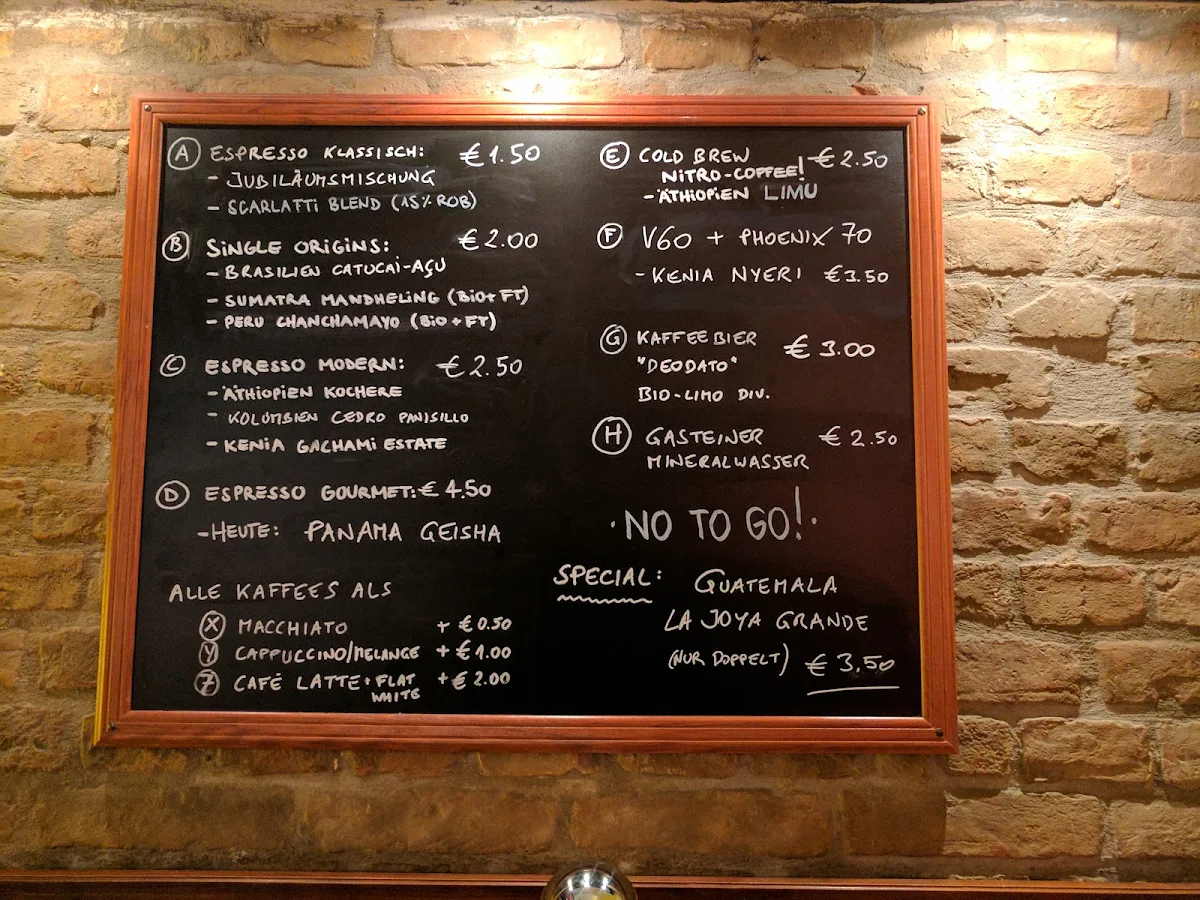 Ⓐ ESPRESSO KLASSISCH: €1.50
- JUBILÄUMSMISCHUNG
- SCARLATTI BLEND (15% ROB)
Ⓑ SINGLE ORIGINS: €2.00
- BRASILIEN CATUCAI-AÇU
- SUMATRA MANDHELING (BIO+FT)
- PERU CHANCHAMAYO (BIO+FT)
Ⓒ ESPRESSO MODERN: €2.50
- ÄTHIOPIEN KOCHERE
- KOLUMBIEN CEDRO PANISILLO
- KENIA GACHAMI ESTATE
Ⓓ ESPRESSO GOURMET: €4.50
- HEUTE: PANAMA GEISHA
ALLE KAFFEES ALS
Ⓧ MACCHIATO + €0.50
Ⓨ CAPPUCCINO/MELANGE + €1.00
Ⓩ CAFÉ LATTE + FLAT + €2.00
WHITE
Ⓔ COLD BREW €2.50
NITRO-COFFEE!
- ÄTHIOPIEN LIMU
Ⓕ V60 + PHOENIX 70
- KENIA NYERI €3.50
Ⓖ KAFFEEBIER €3.00
"DEODATO"
BIO-LIMO DIV.
Ⓗ GASTEINER €2.50
MINERALWASSER
·NO TO GO!·
SPECIAL: GUATEMALA
LA JOYA GRANDE
(NUR DOPPELT) €3,50